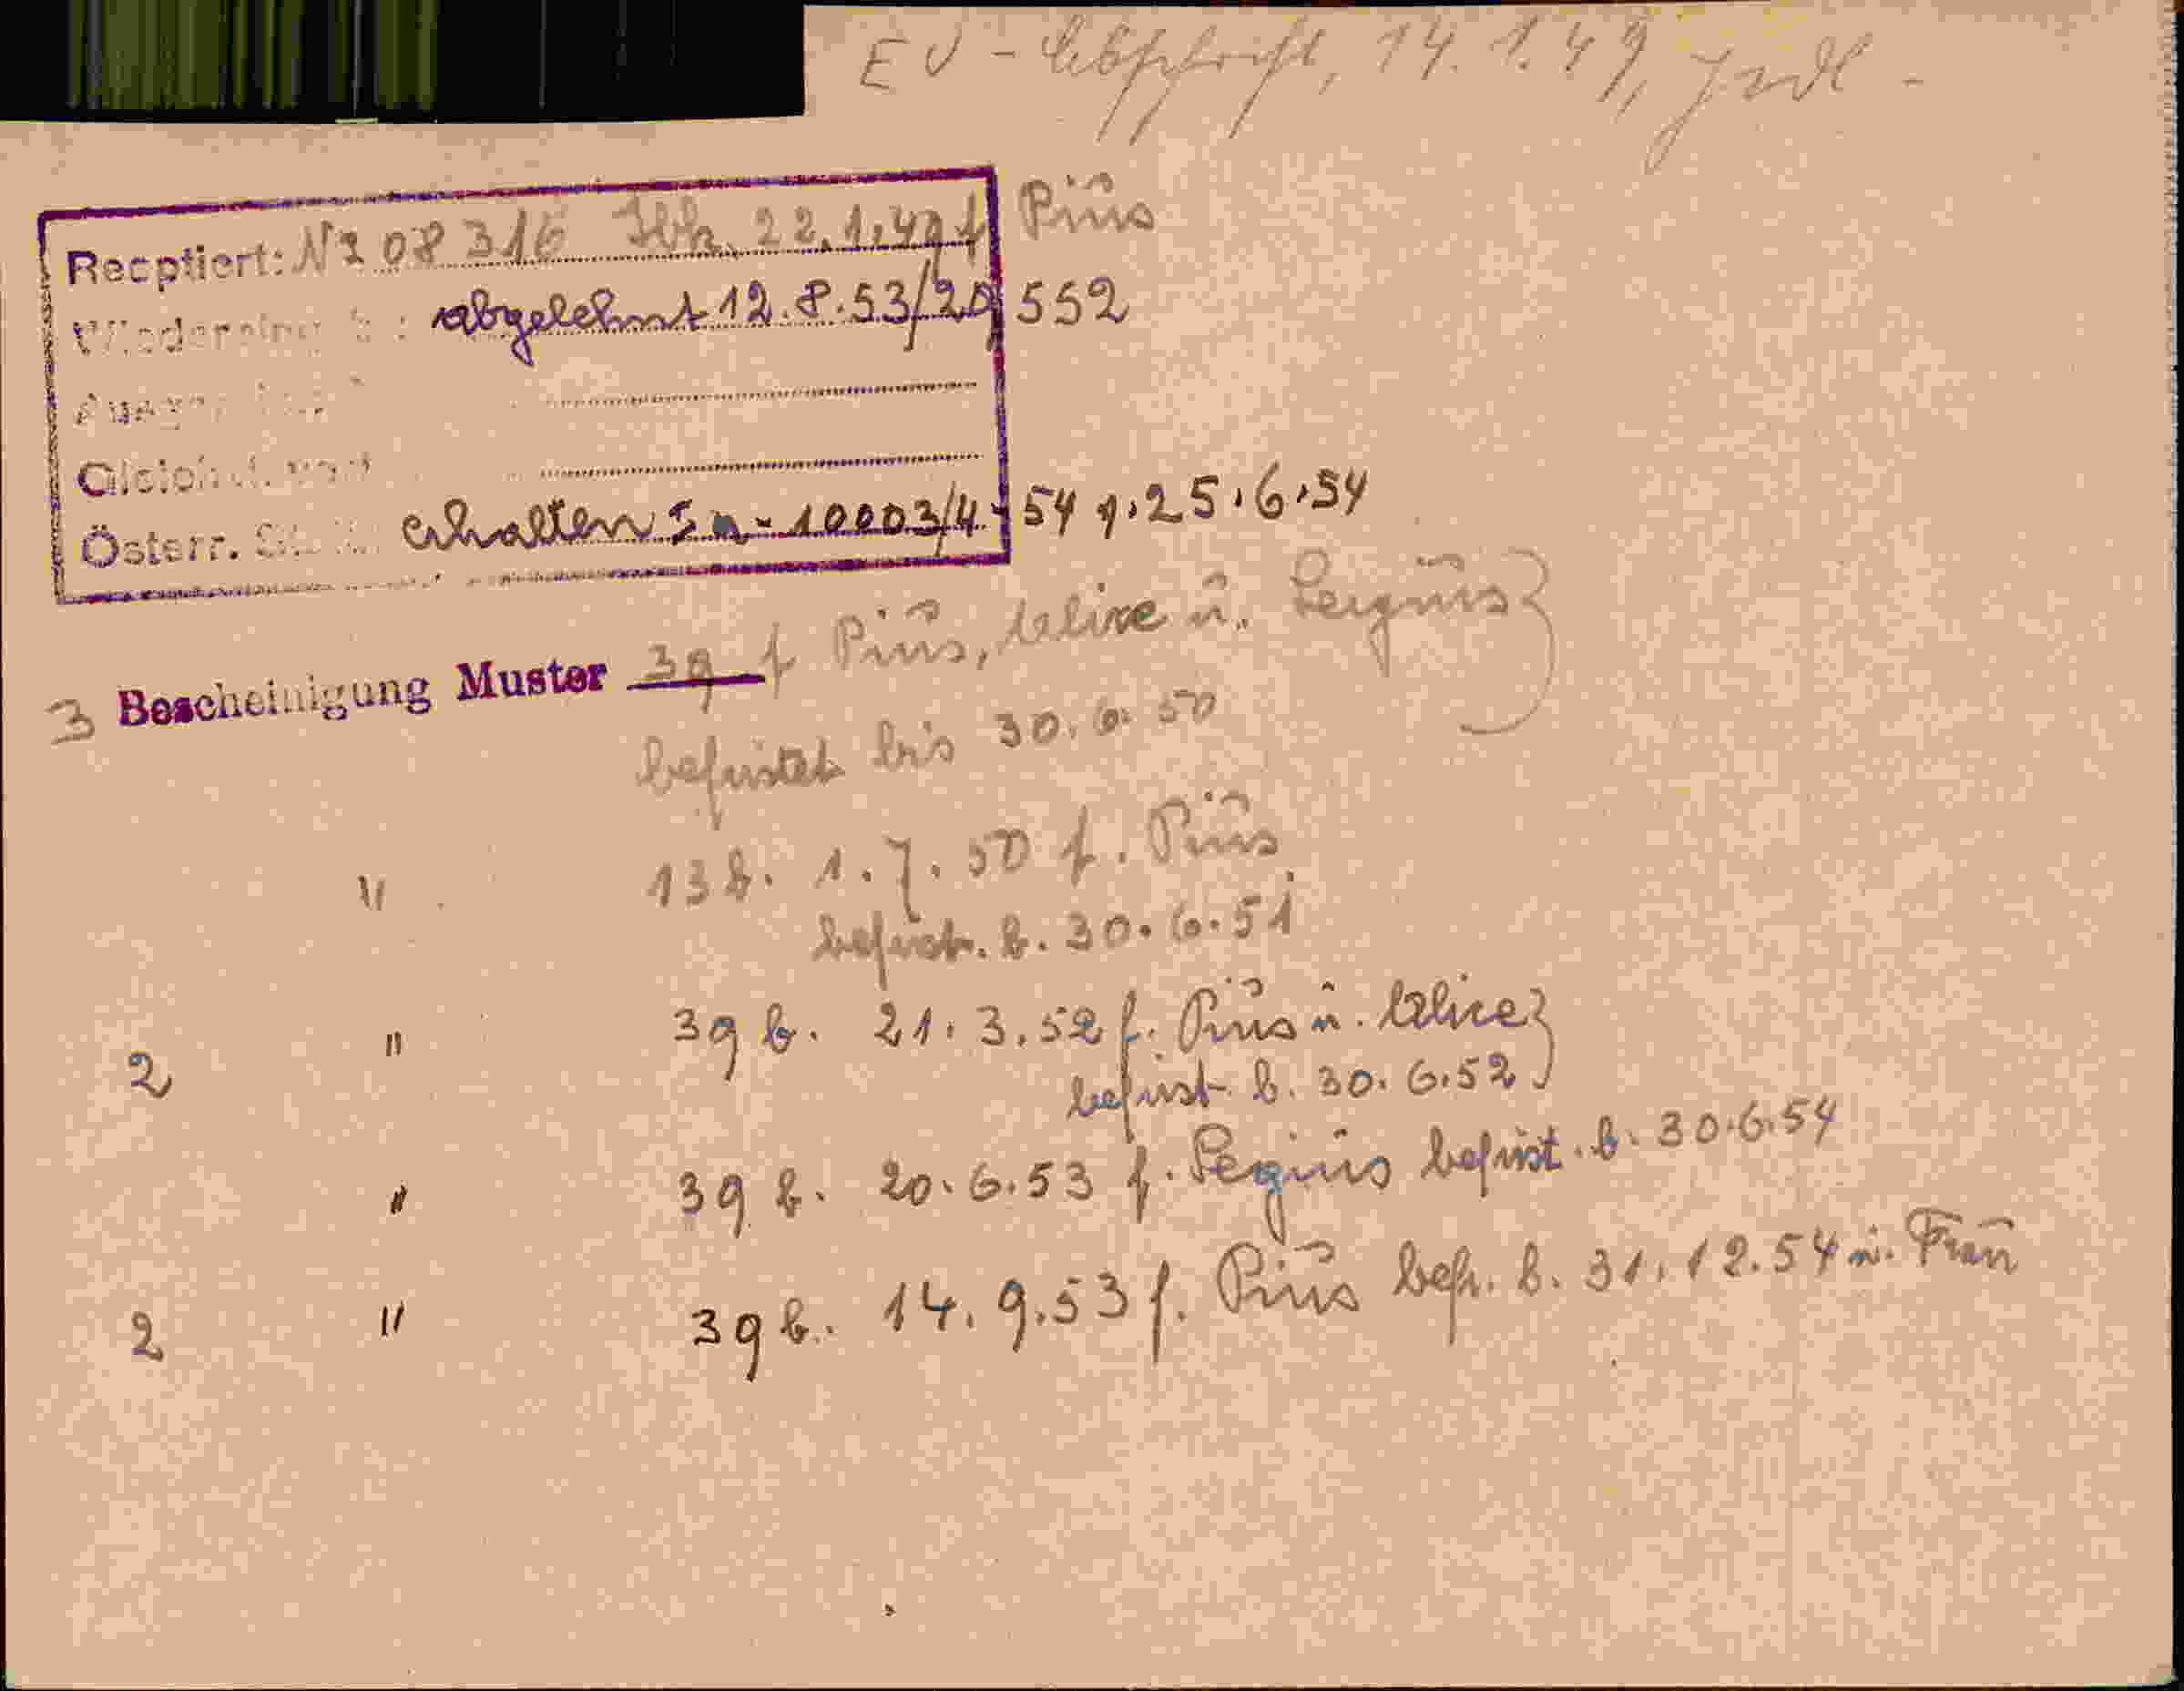 EV - Abschrift, 14. 1. 49,
Recptiert: N° 08316 Ibk. 22.1.49 f Pius
abgelehnt 12.8.53/20 552
Österr. erhalten 10003/4-54 v. 25.6.54
3 Bescheinigung Muster 39 f Pius, Alice u. Sergius
befristet bis 30.6.50
" 13 b. 1.7.50 f. Pius
befrist. b. 30.6.51
2 " 39 b. 21.3.52 f. Pius u. Alice
befrist b. 30.6.52
" 39 b. 20.6.53 f. Sergius befrist. b. 30.6.54
2 " 39 b. 14.9.53 f. Pius befr. b. 31.12.54 u. Frau